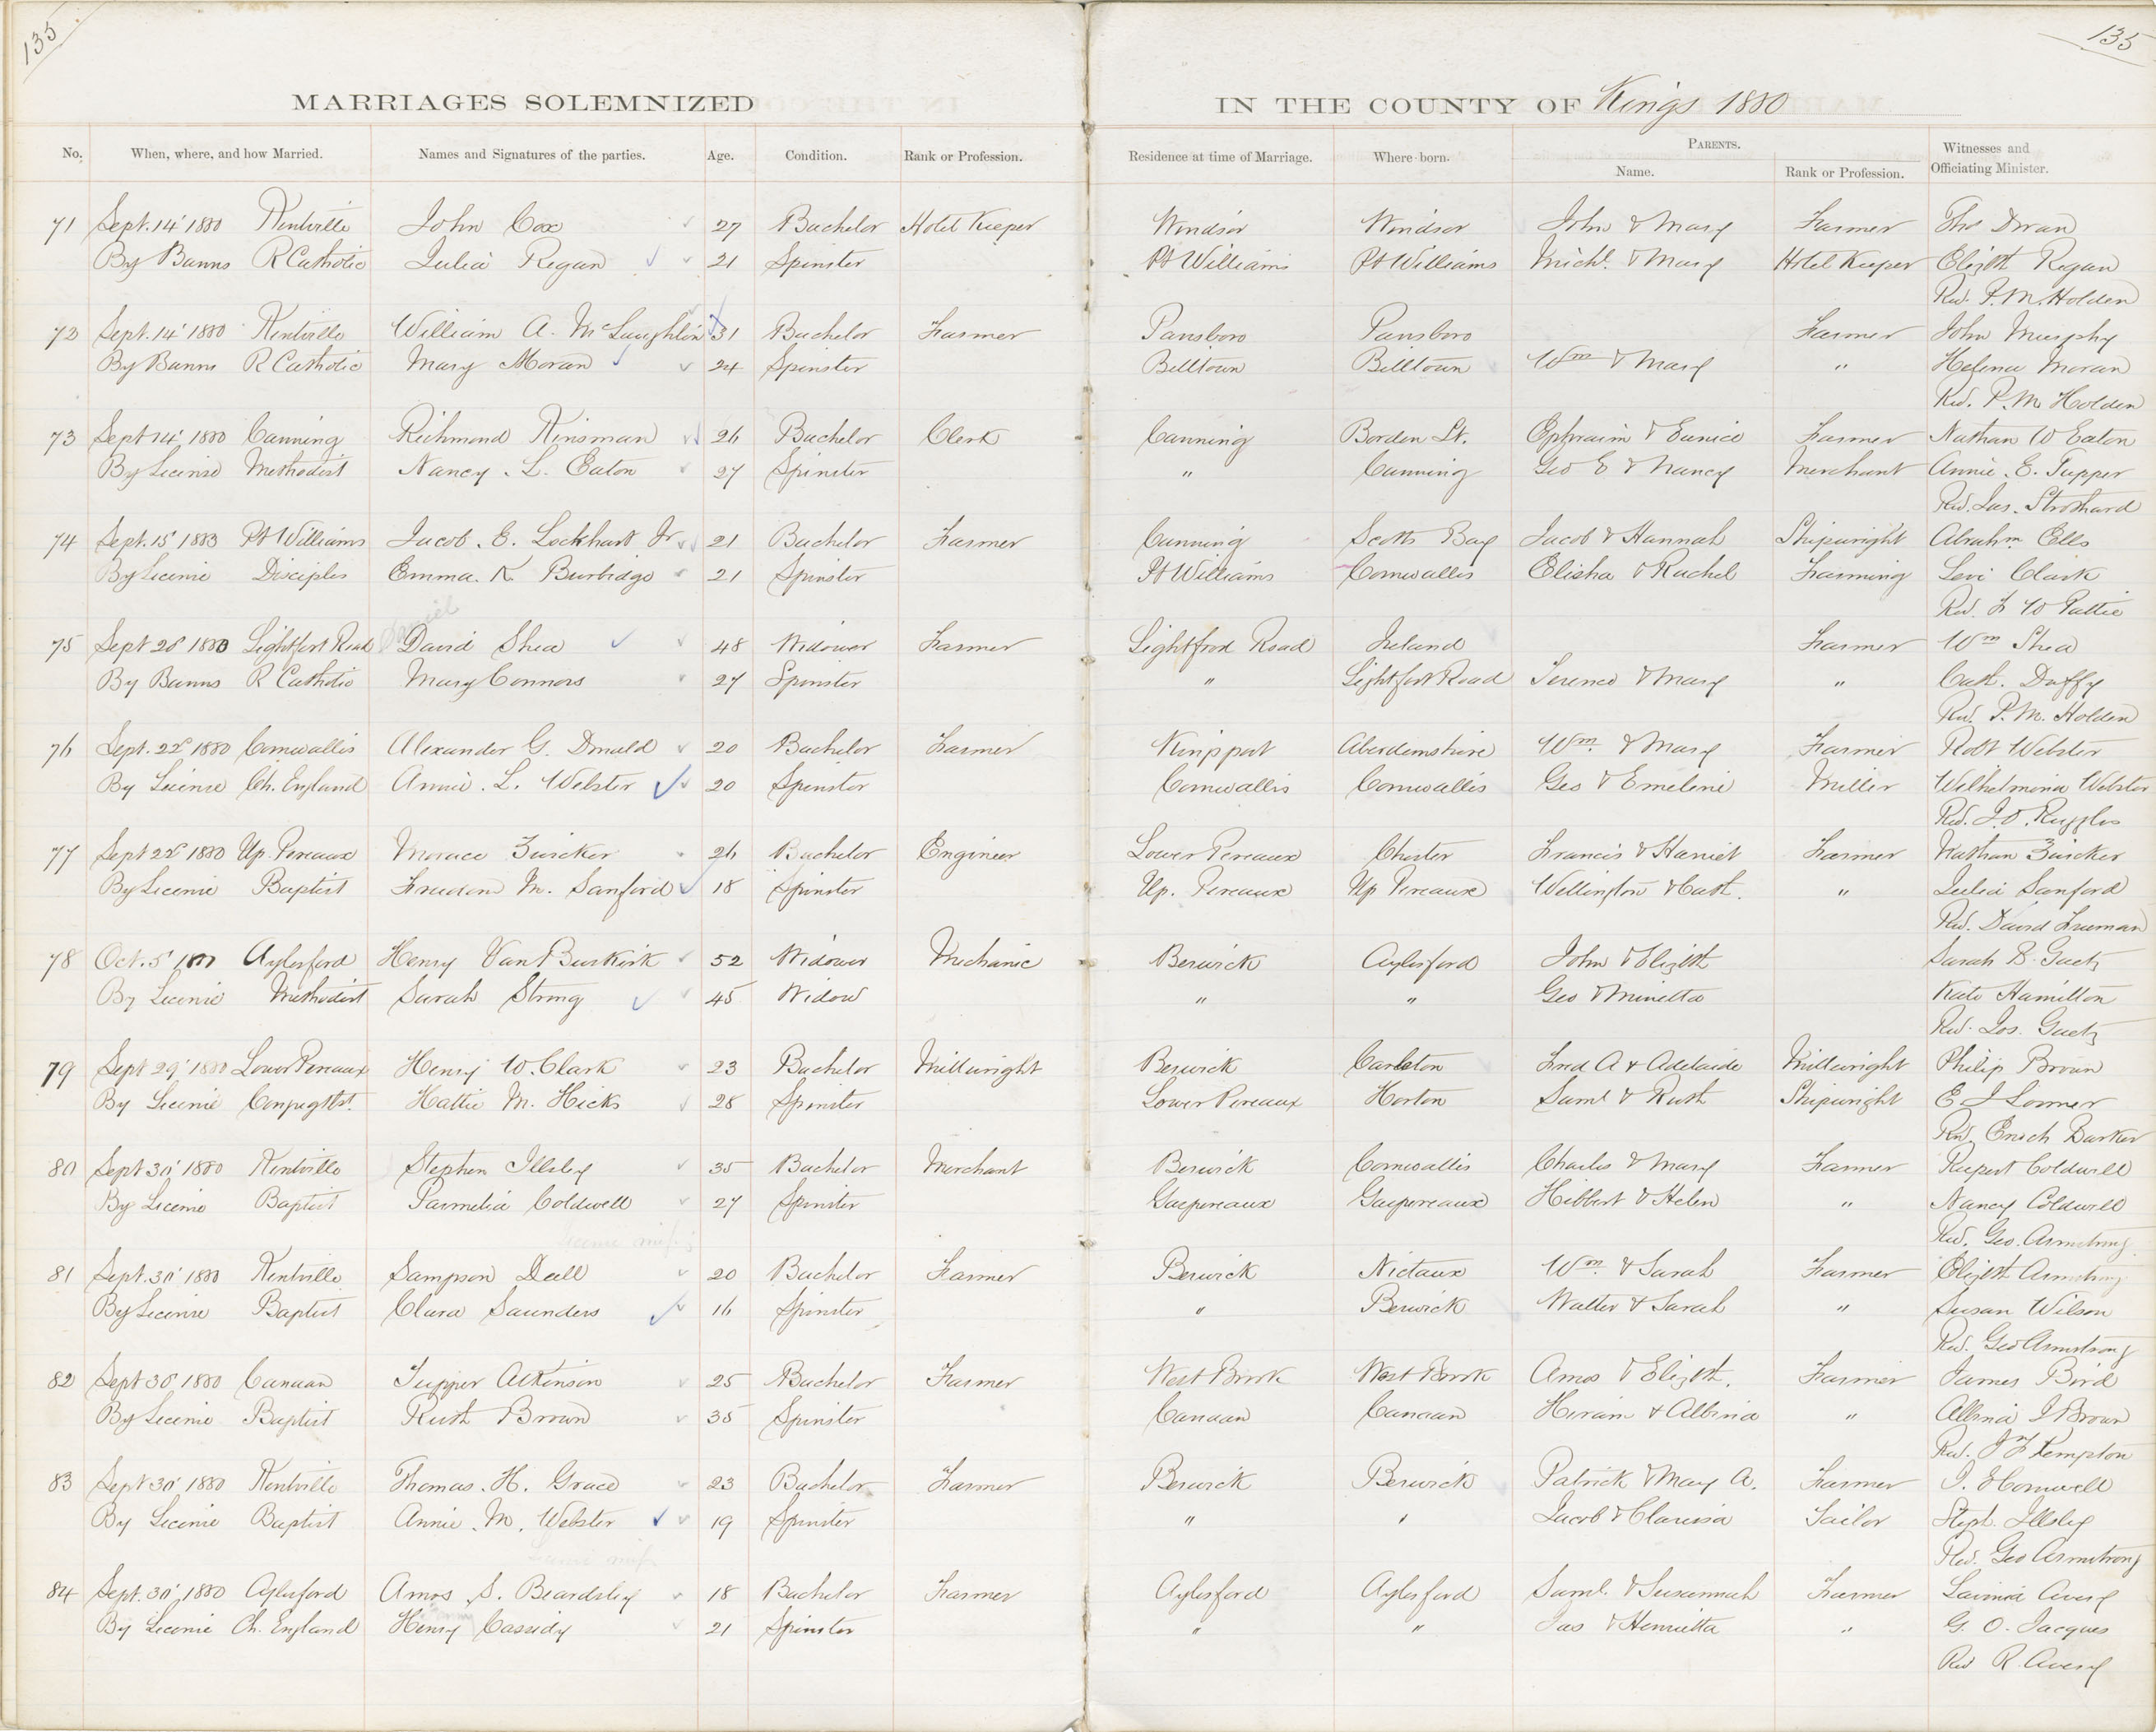 135
135
MARRIAGES SOLEMNIZED IN THE COUNTY OF Kings 1880
No. When, where, and how Married. Names and Signatures of the parties. Age. Condition. Rank or Profession. Residence at time of Marriage. Where born. PARENTS. Name. Rank or Profession. Witnesses and Officiating Minister.
71 Sept. 14' 1880 Kentville John Cox 27 Bachelor Hotel Keeper Windsor Windsor John & Mary Farmer Thos Dwan
By Banns R Catholic Julia Regan 21 Spinster Pt Williams Pt Williams Michl. & Mary Hotel Keeper Elizth Regan
Rev. P. M. Holden
72 Sept. 14' 1880 Kentville William A. McLaughlin 31 Bachelor Farmer Parrsboro Parrsboro Farmer John Murphy
By Banns R Catholic Mary Moran 24 Spinster Billtown Billtown Wm & Mary " Helena Moran
Rev. P. M. Holden
73 Sept 14', 1880 Canning Richmond Kinsman 26 Bachelor Clerk Canning Borden St. Ephraim & Eunice Farmer Nathan W Eaton
By License Methodist Nancy L. Eaton 27 Spinster " Canning Geo E & Nancy Merchant Annie E. Tupper
Rev. Jas. Strothard
74 Sept. 15' 1883 Pt Williams Jacob E. Lockhart Jr 21 Bachelor Farmer Canning Scotts Bay Jacob & Hannah Shipwright Abrahm. Ells
By License Disciples Emma. K. Burbidge 21 Spinster Pt Williams Cornwallis Elisha & Rachel Farming Levi Clark
Rev. F W Pattie
Daniel
75 Sept 20' 1880 Lightfoot Road David Shea 48 Widower Farmer Lightfoot Road Ireland Farmer Wm Shea
By Banns R Catholic Mary Connors 27 Spinster " Lightfoot Road Terence & Mary " Cath. Duffy
Rev. P. M. Holden
76 Sept. 22d 1880 Cornwallis Alexander G. Donald 20 Bachelor Farmer Kingsport Aberdeenshire Wm. & Mary Farmer Robt Webster
By License Ch. England Annie. L. Webster 20 Spinster Cornwallis Cornwallis Geo & Emeline Miller Wilhelmina Webster
Rev. J. O. Ruggles
77 Sept 22d 1880 Up. Pereaux Horace Zuicker 26 Bachelor Engineer Lower Pereaux Chester Francis & Harriet Farmer Nathan Zuicker
By License Baptist M. Sanford 18 Spinster Up. Pereaux Up Pereaux Wellington & Cath. " Julia Sanford
Rev. David Freeman
78 Oct. 5' Aylesford Henry Van Buskirk 52 Widower Mechanic Berwick Aylesford John & Elizth Sarah B. Gaetz
By License Methodist Sarah Strong 45 Widow " " Geo & Minetta Kate Hamilton
Rev. Jos. Gaetz
79 Sept 29' 1880 Lower Pereaux Henry W. Clark 23 Bachelor Millwright Berwick Carleton Fred A & Adelaide Millwright Philip Brown
By License Congregtst. Hattie M. Hicks 28 Spinster Lower Pereaux Horton Saml & Ruth Shipwright E J Loomer
Rev. Enoch Barker
80 Sept 30', 1880 Kentville Stephen Illsley 35 Bachelor Merchant Berwick Cornwallis Charles & Mary Farmer Rupert Coldwell
By License Baptist Parmelia Coldwell 27 Spinster Gaspereaux Gaspereaux Hibbert & Helen " Nancy Coldwell
Rev. Geo. Armstrong
81 Sept. 30' 1880 Kentville Sampson Dell 20 Bachelor Farmer Berwick Nictaux Wm. & Sarah Farmer Elizth Armstrong
By License Baptist Clara Saunders 16 Spinster " Berwick Walter & Sarah " Susan Wilson
Rev. Geo Armstrong
82 Sept 30' 1880 Canaan Tupper Atkinson 25 Bachelor Farmer West Brook West Brook Amos & Elizth. Farmer James Bird
By License Baptist Ruth Brown 35 Spinster Canaan Canaan Hiram & Albina " Albina J Brown
Rev. J F Kempton
83 Sept 30' 1880 Kentville Thomas. H. Grace 23 Bachelor Farmer Berwick Berwick Patrick & Mary A. Farmer
By License Baptist Annie. M. Webster 19 Spinster " " Jacob & Clarissa Tailor Steph. Illsley
Rev. Geo Armstrong
84 Sept. 30', 1880 Aylesford Amos S. Beardsley 18 Bachelor Farmer Aylesford Aylesford Saml. & Susannah Farmer Lavinia Avery
By License Ch. England Henry Cassidy 21 Spinster " " Jas & Henrietta " G. O. Jacques
Rev R. Avery